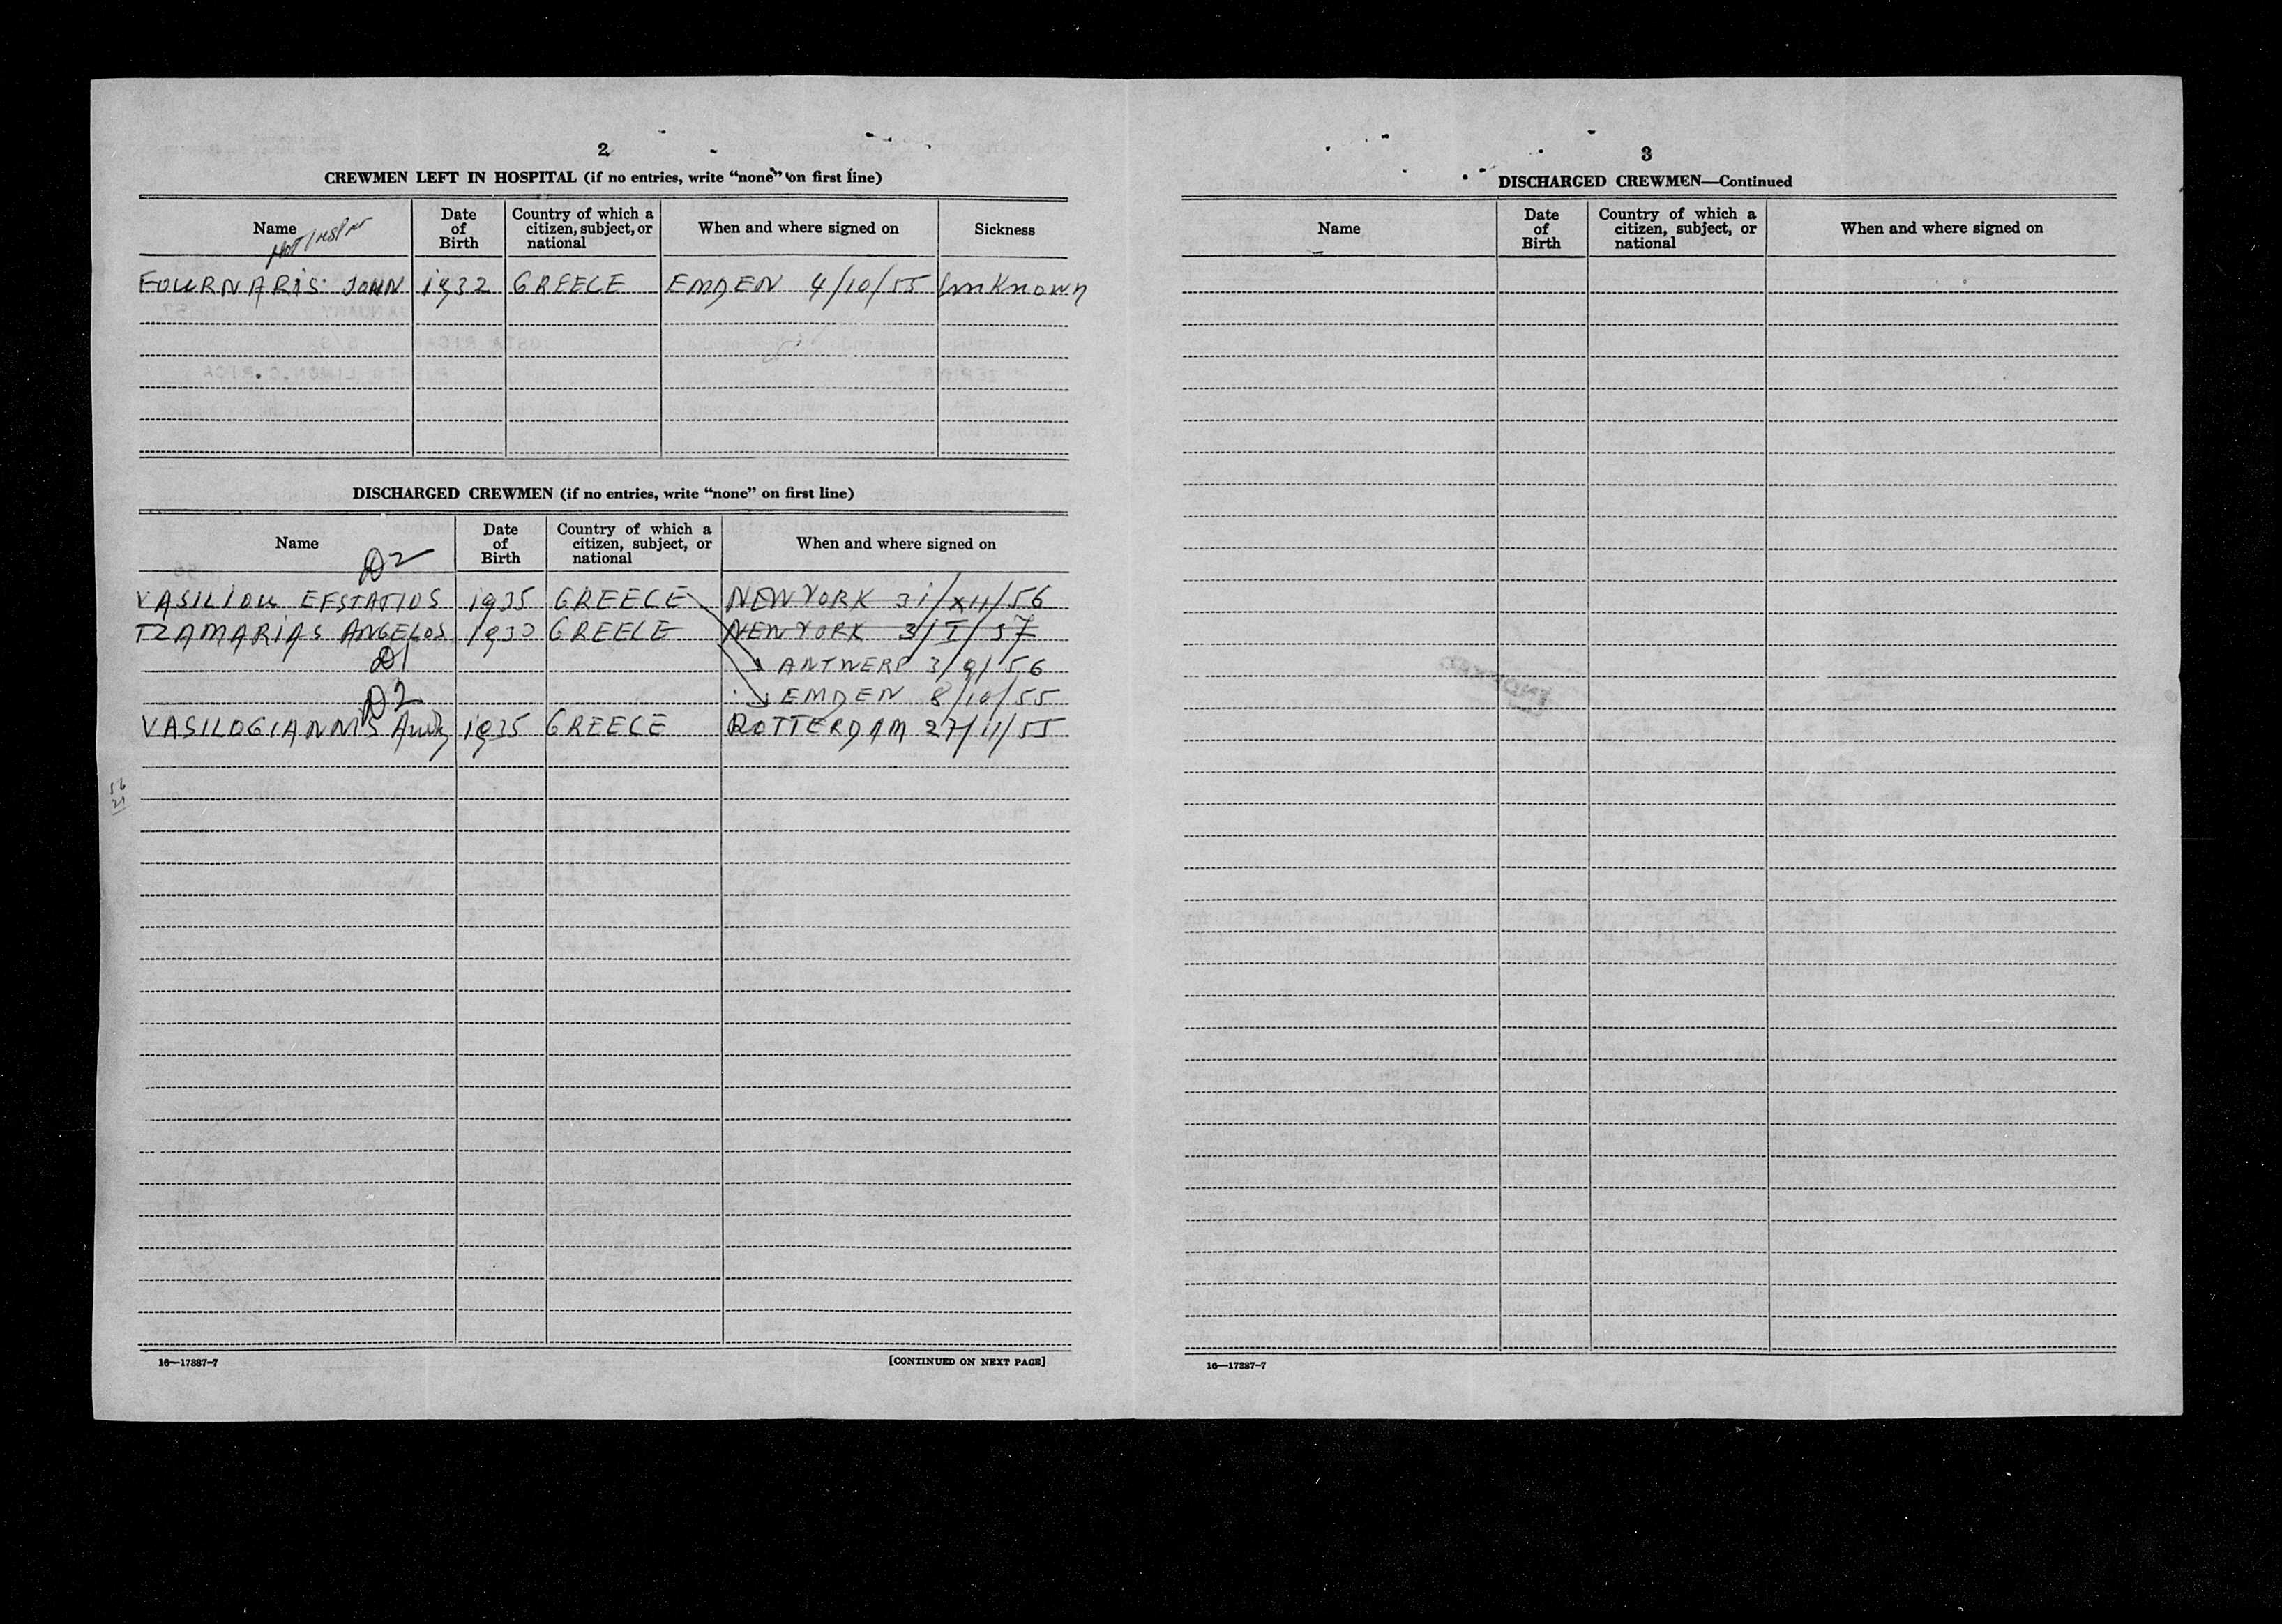 2
CREWMEN LEFT IN HOSPITAL (if no entries, write “none” on first line)
Name Date of Birth Country of which a citizen, subject, or national When and where signed on Sickness
FOURNARIS JOHN 1932 GREECE EMDEN 4/10/55 Unknown
DISCHARGED CREWMEN (if no entries, write “none” on first line)
Name Date of Birth Country of which a citizen, subject, or national When and where signed on
D2
VASILIOU EFSTATIOS 1935 GREECE NEW YORK 31/XII/56
TZAMARIAS ANGELOS GREECE NEW YORK 3/I/57
D1 ANTWERP 3/9/56
D2 EMDEN 8/10/55
VASILOGIANNIS 1935 GREECE ROTTERDAM 27/11/55
16—17387-7 [CONTINUED ON NEXT PAGE]
3
DISCHARGED CREWMEN—Continued
Name Date of Birth Country of which a citizen, subject, or national When and where signed on
16—17387-7